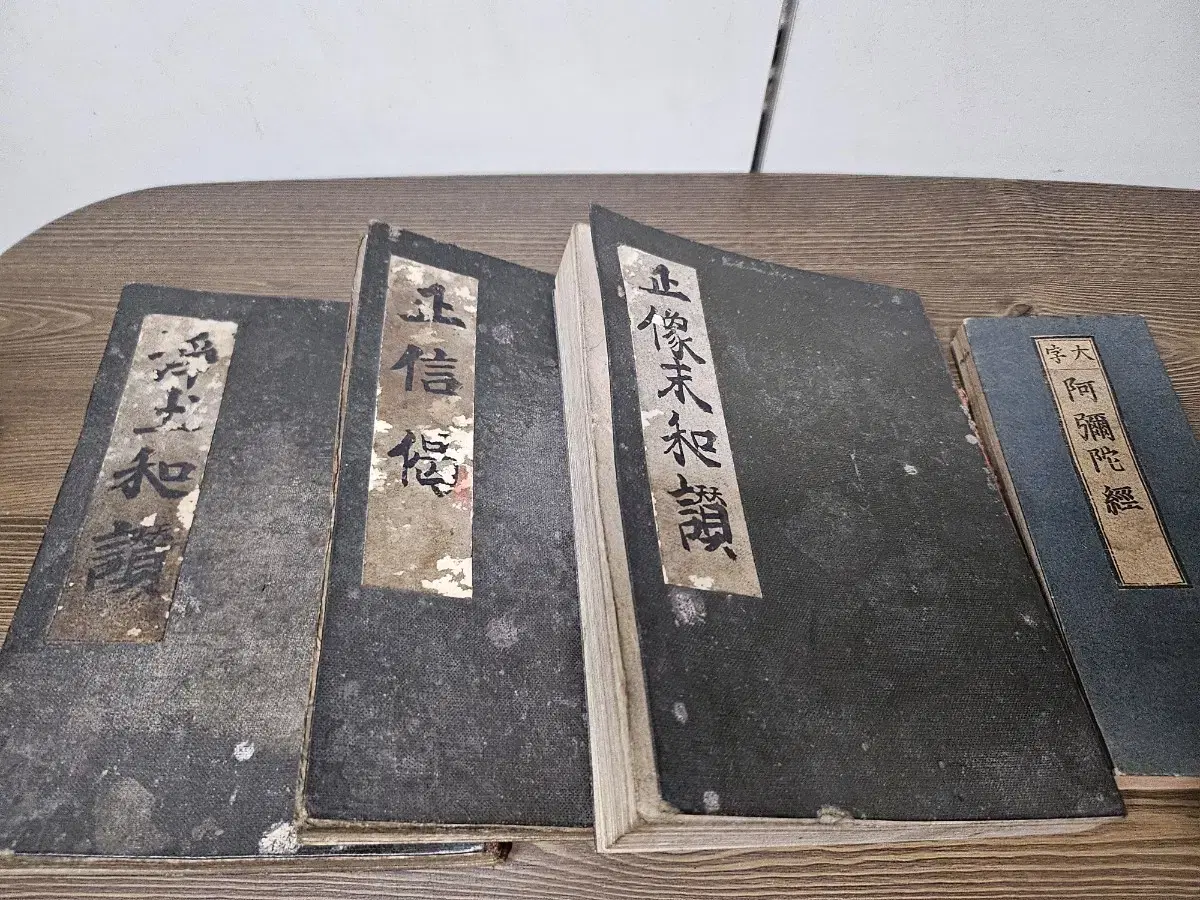 淨土和讚
正信偈
正像末和讚
大字
阿彌陀經